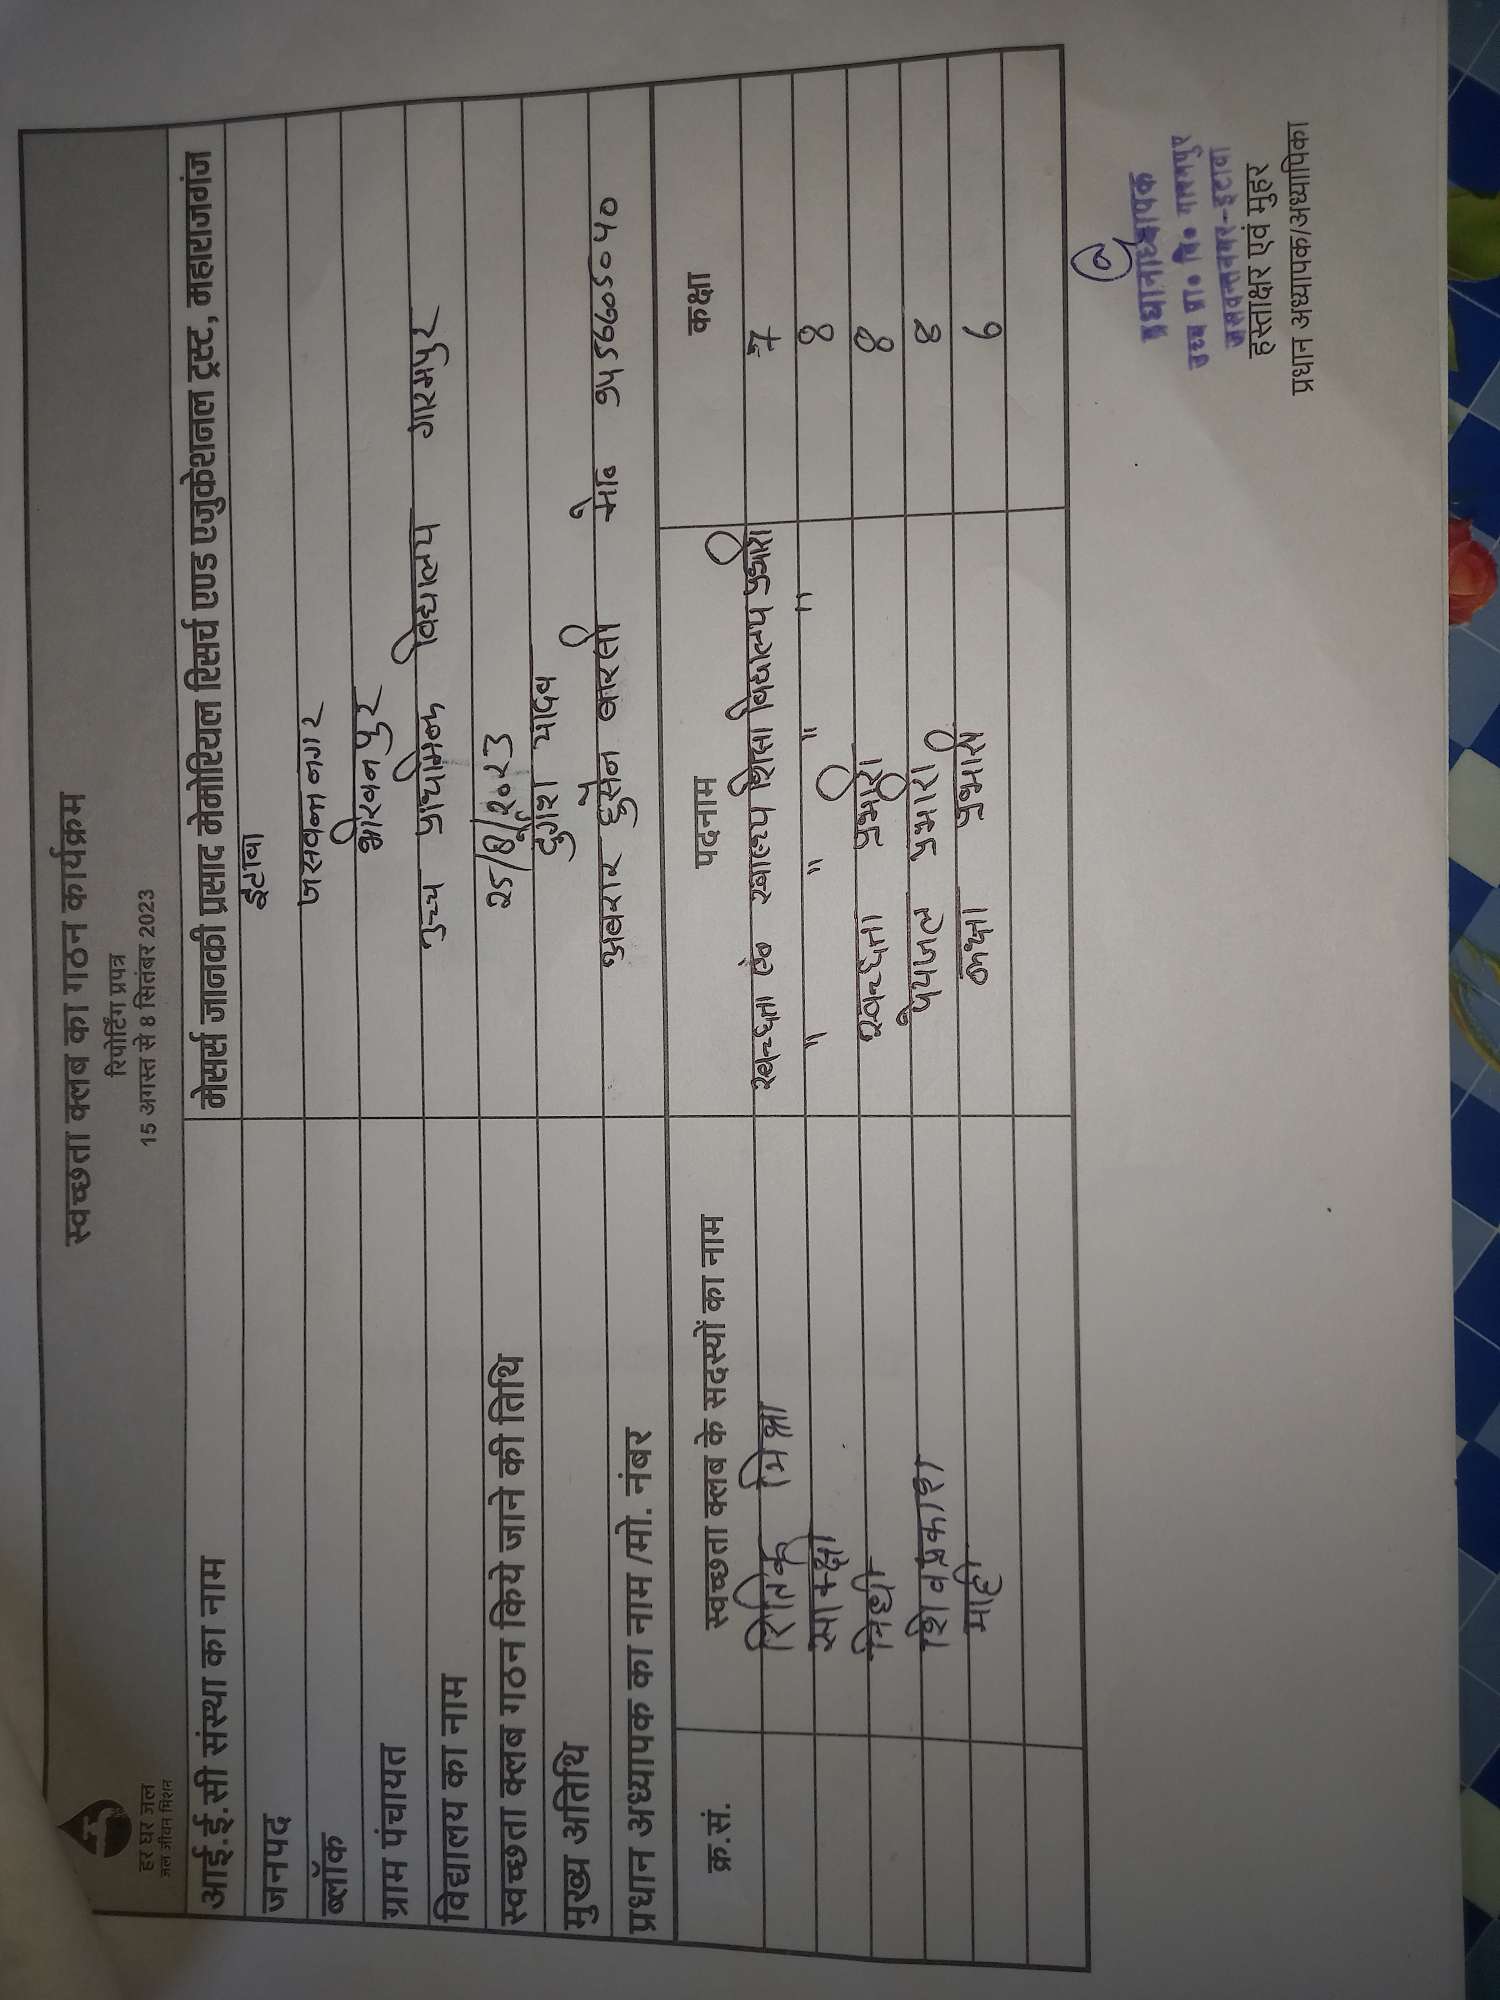 स्वच्छता क्लब का गठन कार्यक्रम
रिपोर्टिंग प्रपत्र
15 अगस्त से 8 सितंबर 2023
हर घर जल
जल जीवन मिशन
आई.ई.सी संस्था का नाम मेसर्स जानकी प्रसाद मेमोरियल रिसर्च एण्ड एजुकेशनल ट्रस्ट, महाराजगंज
जनपद इटावा
ब्लॉक जसवन्तनगर
ग्राम पंचायत
विद्यालय का नाम उच्च प्राथमिक विद्यालय गारमपुर
स्वच्छता क्लब गठन किये जाने की तिथि 25/8/2023
मुख्य अतिथि यादव
प्रधान अध्यापक का नाम /मो. नंबर अबरार हुसैन वारसी मो० 9456605040
क्र.सं. स्वच्छता क्लब के सदस्यों का नाम पदनाम कक्षा
रितिक मिश्रा स्वच्छता एवं स्वास्थ्य शिक्षा विद्यालय प्रभारी 7
" " " " 8
निधी स्वच्छता प्रभारी 8
शिवप्रकाश पेयजल प्रभारी 8
माही कक्षा प्रभारी 6
प्रधानाध्यापक
उच्च प्रा० वि० गारमपुर
जसवन्तनगर-इटावा
हस्ताक्षर एवं मुहर
प्रधान अध्यापक/अध्यापिका